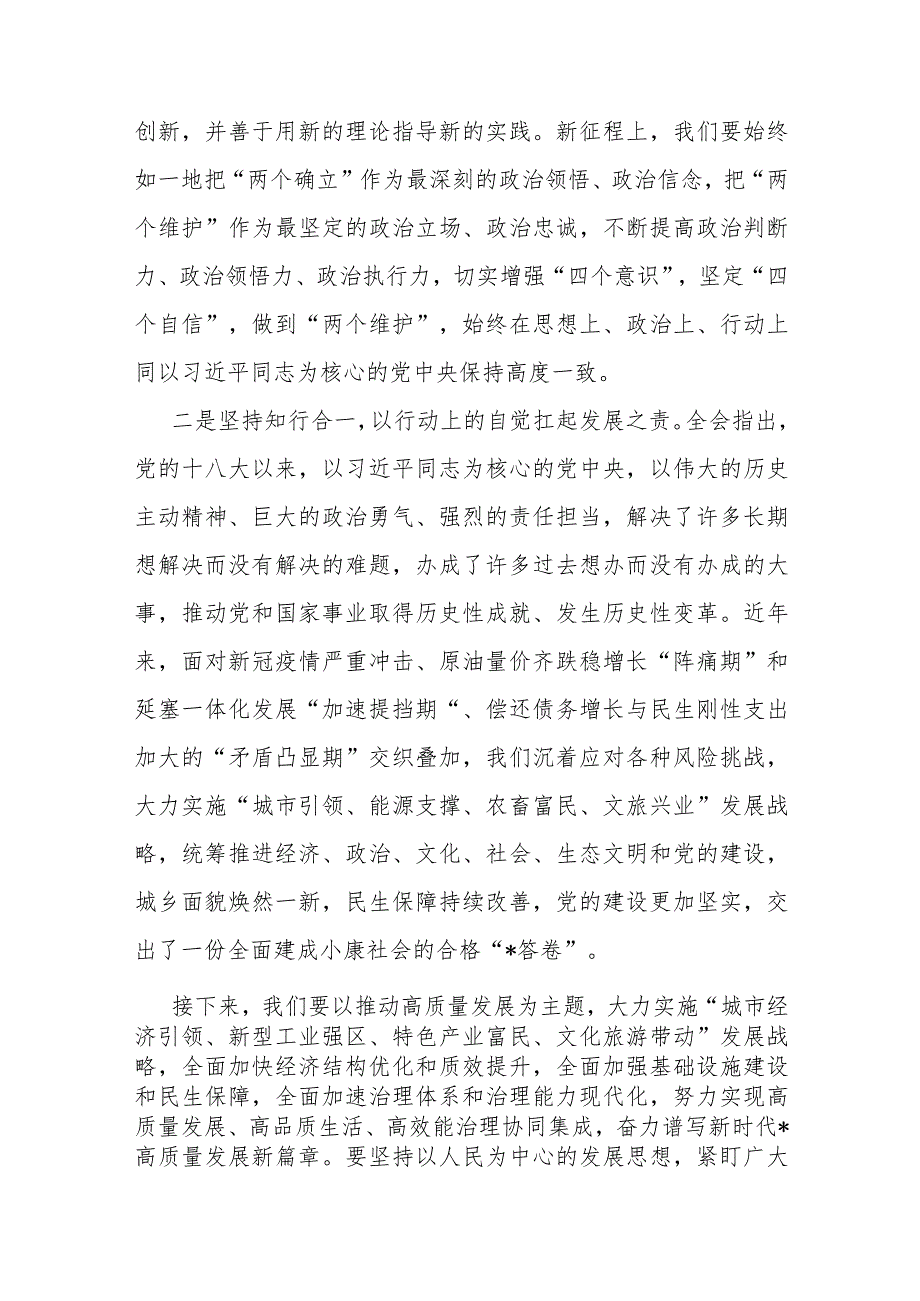 创新，并善于用新的理论指导新的实践。新征程上，我们要始终
如一地把“两个确立”作为最深刻的政治领悟、政治信念，把“两
个维护”作为最坚定的政治立场、政治忠诚，不断提高政治判断
力、政治领悟力、政治执行力，切实增强“四个意识”，坚定“四
个自信”，做到“两个维护”，始终在思想上、政治上、行动上
同以习近平同志为核心的党中央保持高度一致。
二是坚持知行合一，以行动上的自觉扛起发展之责。全会指出，
党的十八大以来，以习近平同志为核心的党中央，以伟大的历史
主动精神、巨大的政治勇气、强烈的责任担当，解决了许多长期
想解决而没有解决的难题，办成了许多过去想办而没有办成的大
事，推动党和国家事业取得历史性成就、发生历史性变革。近年
来，面对新冠疫情严重冲击、原油量价齐跌稳增长“阵痛期”和
延塞一体化发展“加速提挡期“、偿还债务增长与民生刚性支出
加大的“矛盾凸显期”交织叠加，我们沉着应对各种风险挑战，
大力实施“城市引领、能源支撑、农畜富民、文旅兴业”发展战
略，统筹推进经济、政治、文化、社会、生态文明和党的建设，
城乡面貌焕然一新，民生保障持续改善，党的建设更加坚实，交
出了一份全面建成小康社会的合格“*答卷”。
接下来，我们要以推动高质量发展为主题，大力实施“城市经
济引领、新型工业强区、特色产业富民、文化旅游带动”发展战
略，全面加快经济结构优化和质效提升，全面加强基础设施建设
和民生保障，全面加速治理体系和治理能力现代化，努力实现高
质量发展、高品质生活、高效能治理协同集成，奋力谱写新时代*
高质量发展新篇章。要坚持以人民为中心的发展思想，紧盯广大